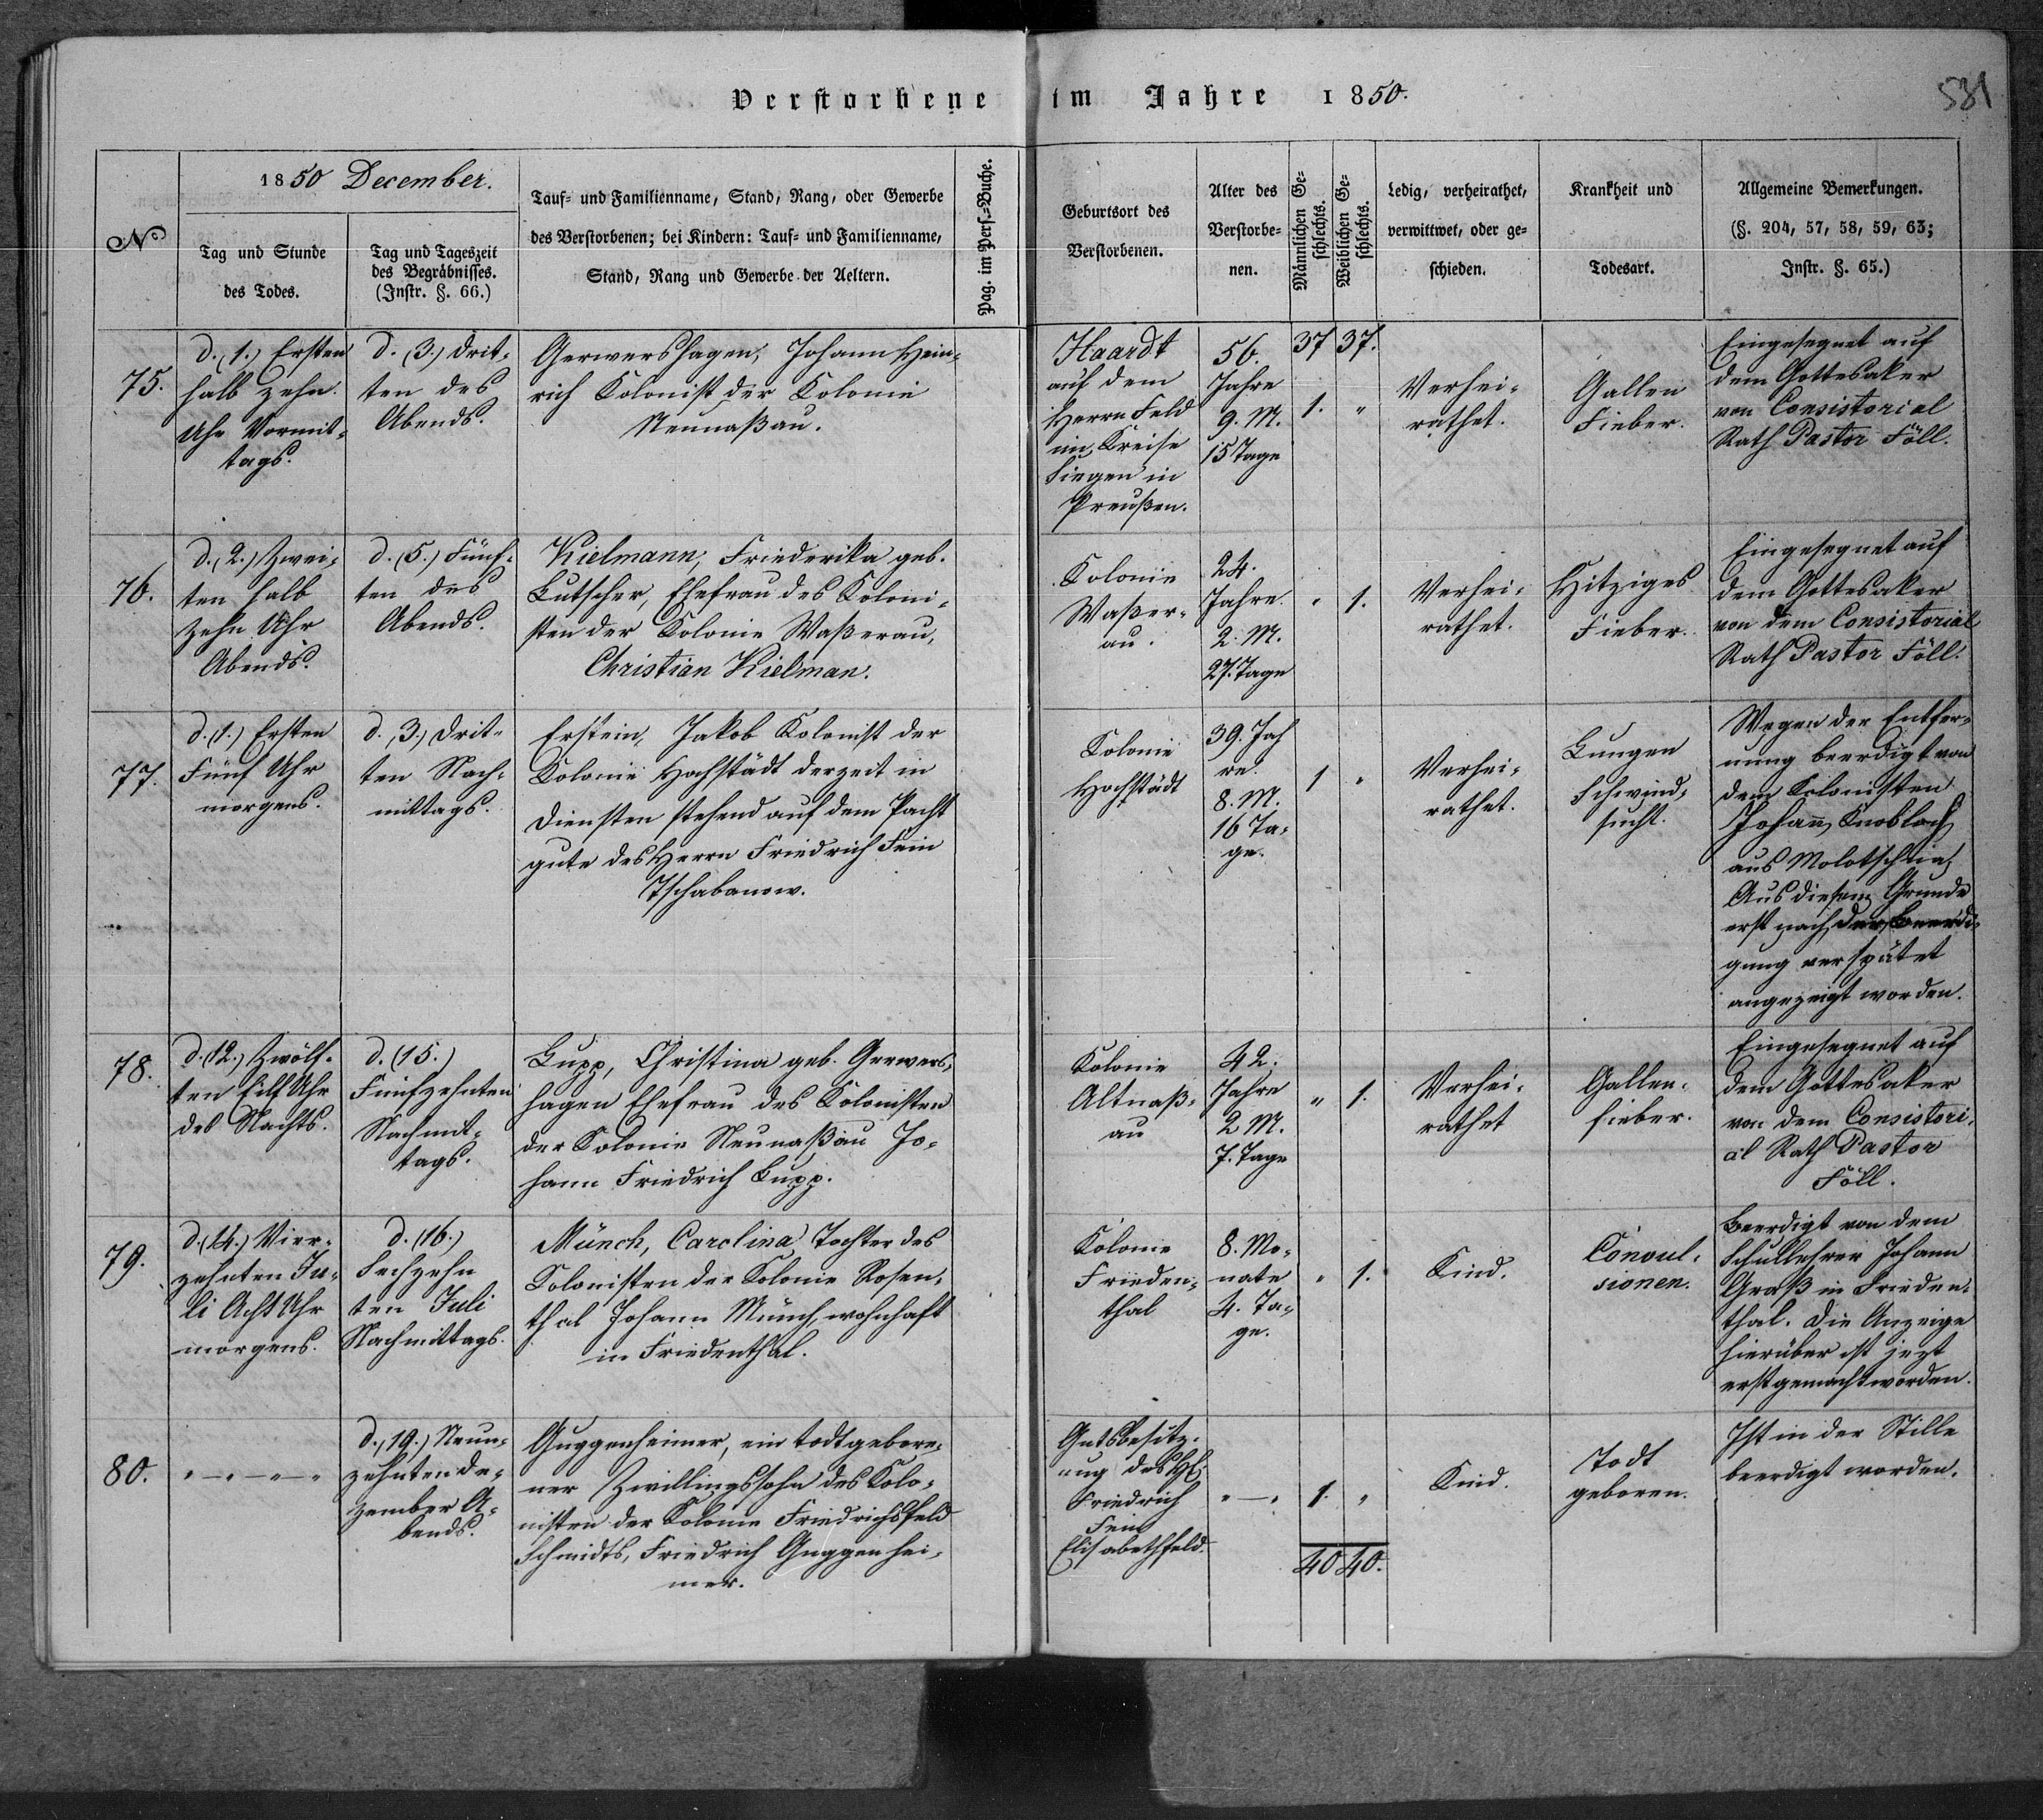 Verstorbene im Jahre 1850.
531
№
1850 December.
Tag und Stunde
des Todes.
Tag und Tageszeit
des Begräbnisses.
(Instr. §. 66.)
Tauf- und Familienname, Stand, Rang, oder Gewerbe
des Verstorbenen; bei Kindern: Tauf- und Familienname,
Stand, Rang und Gewerbe der Aeltern.
Pag. im Pers-Buche.
Geburtsort des
Verstorbenen.
Alter des
Verstorbe-
nen.
Männlichen Ge-
schlechts.
Weiblichen Ge-
schlechts.
Ledig, verheirathet,
verwittwet, oder ge-
schieden.
Krankheit und
Todesart.
Allgemeine Bemerkungen.
(§. 204, 57, 58, 59, 63;
Instr. §. 65.)
75.
d. (1.) Ersten
halb zehn
Uhr Vormit-
tags.
d. (3.) Drit-
ten des
Abends.
Gerwershagen, Johann Hein-
rich Kolonist der Kolonie
Neunaßau.
Haardt
auf dem
Herrn Feld
im Kreise
Siegen in
Preußen.
56.
Jahre
9. M.
15 Tage
37 37.
1. "
Verhei-
rathet.
Gallen
Fieber.
Eingesegnet auf
dem Gottesaker
von Consistorial
Rath Pastor Föll.
76.
d. (2.) Zwei-
ten halb
zehn Uhr
Abends.
d. (5.) Fünf-
ten des
Abends.
Kielmann, Friederika geb.
Lutscher, Ehefrau des Koloni-
sten der Kolonie Waßerau,
Christian Kielman.
Kolonie
Waßer-
au.
24.
Jahre.
2. M.
27. Tage
" 1.
Verhei-
rathet.
Hitziges
Fieber.
Eingesegnet auf
dem Gottesaker
von dem Consistorial
Rath Pastor Föll.
77.
d. (1.) Ersten
Fünf Uhr
morgens.
d. (3.) Drit-
ten Nach-
mittags.
Erstein, Jakob Kolonist der
Kolonie Hochstädt derzeit in
Diensten stehend auf dem Pacht
gute des Herrn Friedrich Fein
Tschabanow.
Kolonie
Hochstädt
39. Jah
re.
8. M.
16 Ta-
ge.
1 "
Verhei-
rathet.
Lungen
Schwind-
sucht.
Wegen der Entfer-
nung beerdigt von
dem Kolonisten
Johann Knobloch
aus Molotschna
Aus diesem Grunde
erst nach der Beerdi-
gung verspätet
angezeigt worden.
78.
d. (12.) Zwölf-
ten Eilf Uhr
des Nachts.
d. (15.)
Fünfzehnten
Nachmit-
tags.
Lupp, Christina geb. Gerwers-
hagen Ehefrau des Kolonisten
der Kolonie Neunaßau Jo-
hann Friedrich Lupp.
Kolonie
Altnaß-
au
42.
Jahre
2 M.
7. Tage
" 1.
Verhei-
rathet
Gallen-
fieber.
Eingesegnet auf
dem Gottesaker
von dem Consistori-
al Rath Pastor
Föll.
79.
d. (14.) Vier-
zehnten Ju-
li Acht Uhr
morgens.
d. (16.)
Sechzehn
ten Juli
Nachmittags.
Münch, Carolina Tochter des
Kolonisten der Kolonie Rosen-
thal Johann Münch, wohnhaft
in Friedenthal.
Kolonie
Frieden-
thal
8. Mo-
nate
4. Ta-
ge.
" 1.
Kind.
Convul-
sionen.
Beerdigt von dem
Schullehrer Johann
Graß in Frieden-
thal. Die Anzeige
hierüber ist jezt
erst gemacht worden.
80.
" — " — " — "
d. (19.) Neun-
zehnten De-
zember A-
bends.
Guggenheimer, ein todtgebore-
ner Zwillingssohn des Kolo-
nisten der Kolonie Friedrichsfeld
Schmidts, Friedrich Guggenhei-
mer.
Gutsbesitz-
ung des H.
Friedrich
Fein
Elisabethfeld.
" — "
1. "
40 40.
Kind.
Todt
geboren.
Ist in der Stille
beerdigt worden.